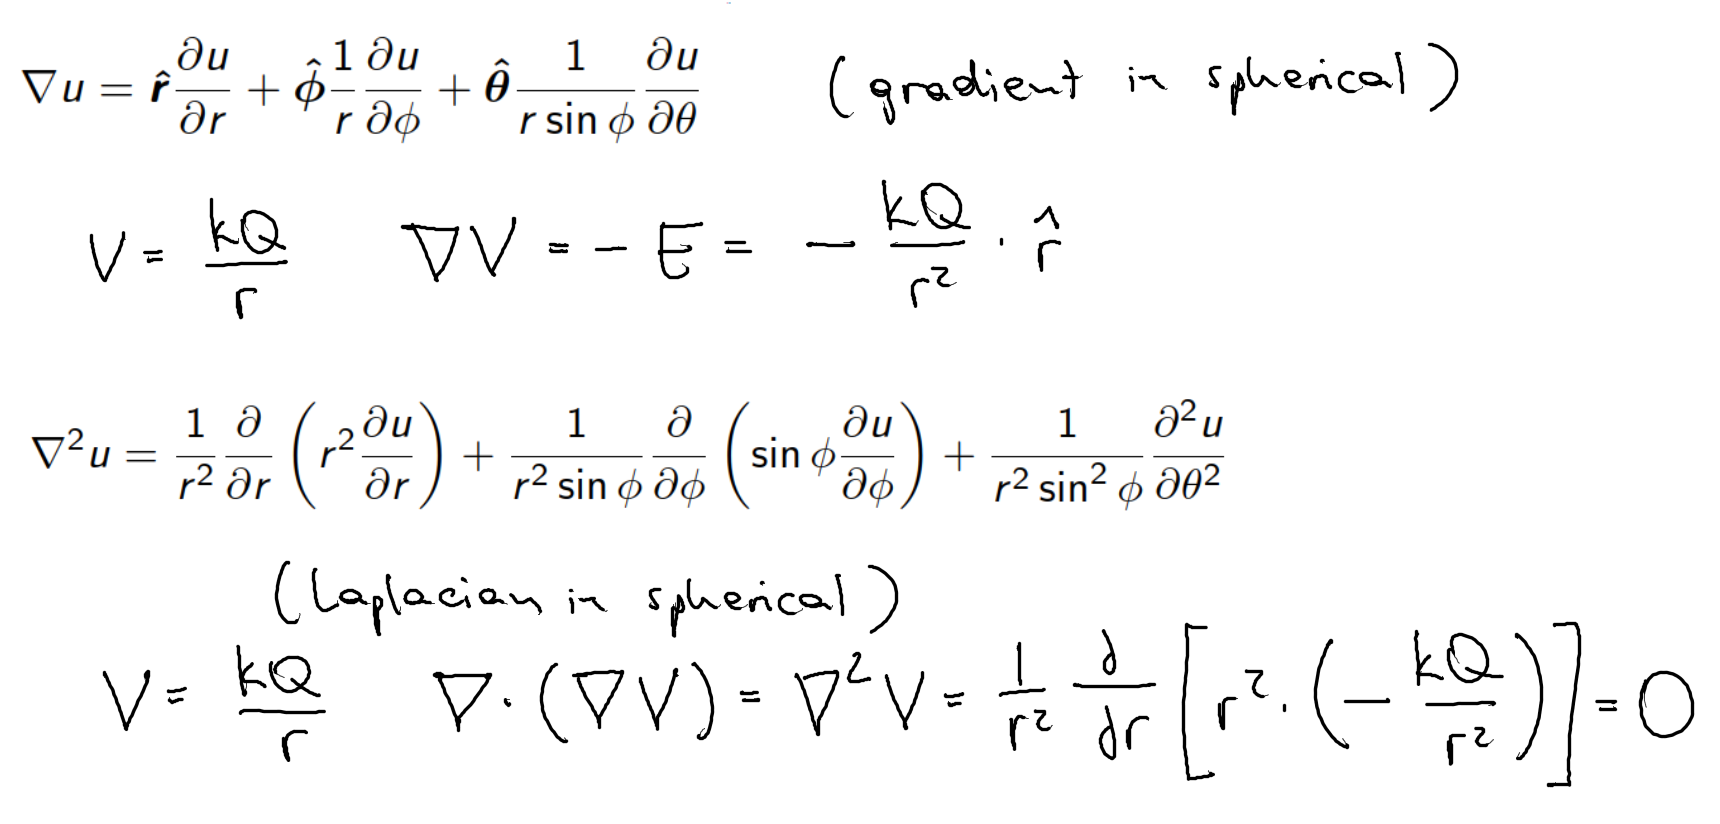 ∇u = r̂ ∂u/∂r + ϕ̂ 1/r ∂u/∂ϕ + θ̂ 1/(r sin ϕ) ∂u/∂θ (gradient in spherical)
V = kQ/r ∇V = - E = - kQ/r² · r̂
∇²u = 1/r² ∂/∂r (r² ∂u/∂r) + 1/(r² sin ϕ) ∂/∂ϕ (sin ϕ ∂u/∂ϕ) + 1/(r² sin² ϕ) ∂²u/∂θ²
(Laplacian in spherical)
V = kQ/r ∇·(∇V) = ∇²V = 1/r² ∂/∂r [r² · (- kQ/r²)] = 0